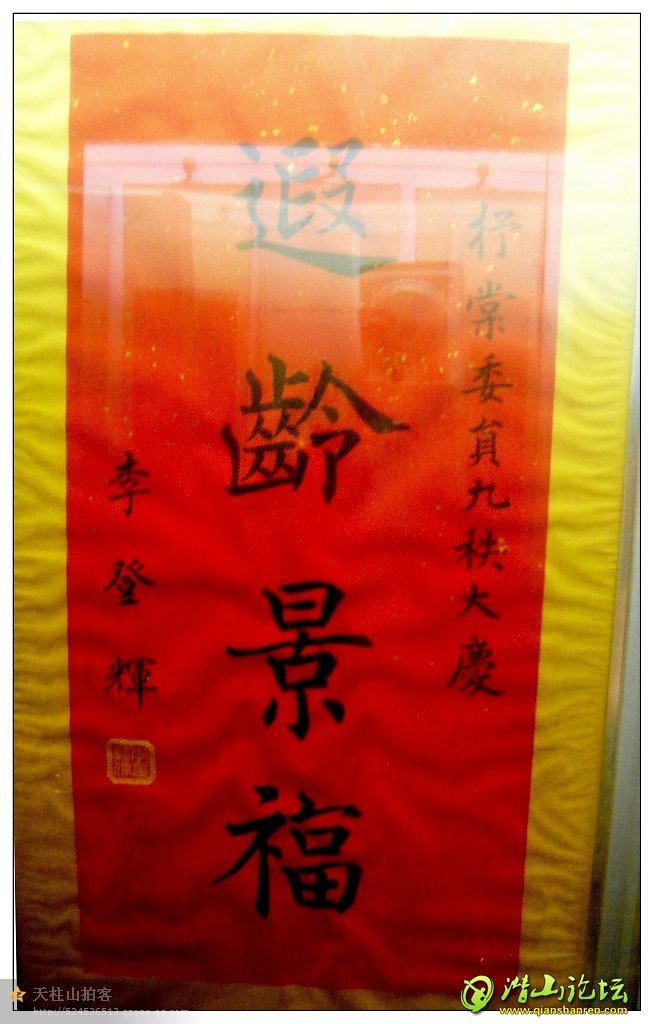 杼棠委員九秩大慶
遐齡景福
李登輝
天柱山拍客
http://524526512.qzone.qq.com
潜山论坛
www.qianshanren.com